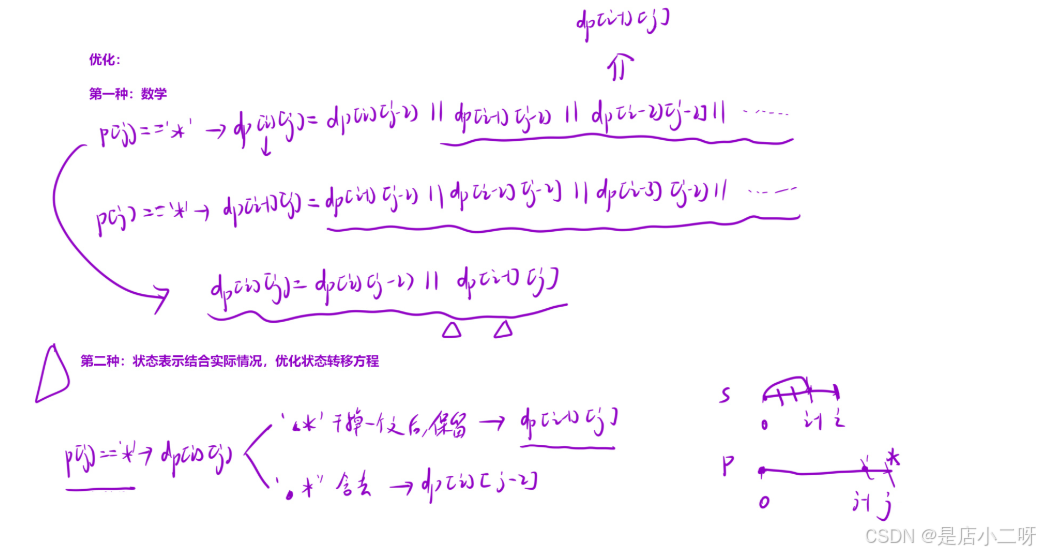 dp[i-1][j]
优化：
第一种：数学
p[j]=='*' → dp[i][j] = dp[i][j-2] || dp[i-1][j-2] || dp[i-2][j-2] || ......
p[j]=='*' → dp[i-1][j] = dp[i-1][j-2] || dp[i-2][j-2] || dp[i-3][j-2] || ......
dp[i][j] = dp[i][j-2] || dp[i-1][j]
第二种：状态表示结合实际情况，优化状态转移方程
'.*' 干掉一个之后，保留 → dp[i-1][j]
p[j]=='*' → dp[i][j]
'.*' 舍去 → dp[i][j-2]
s
0 i-1 i
p *
0 j-1 j
CSDN @是店小二呀